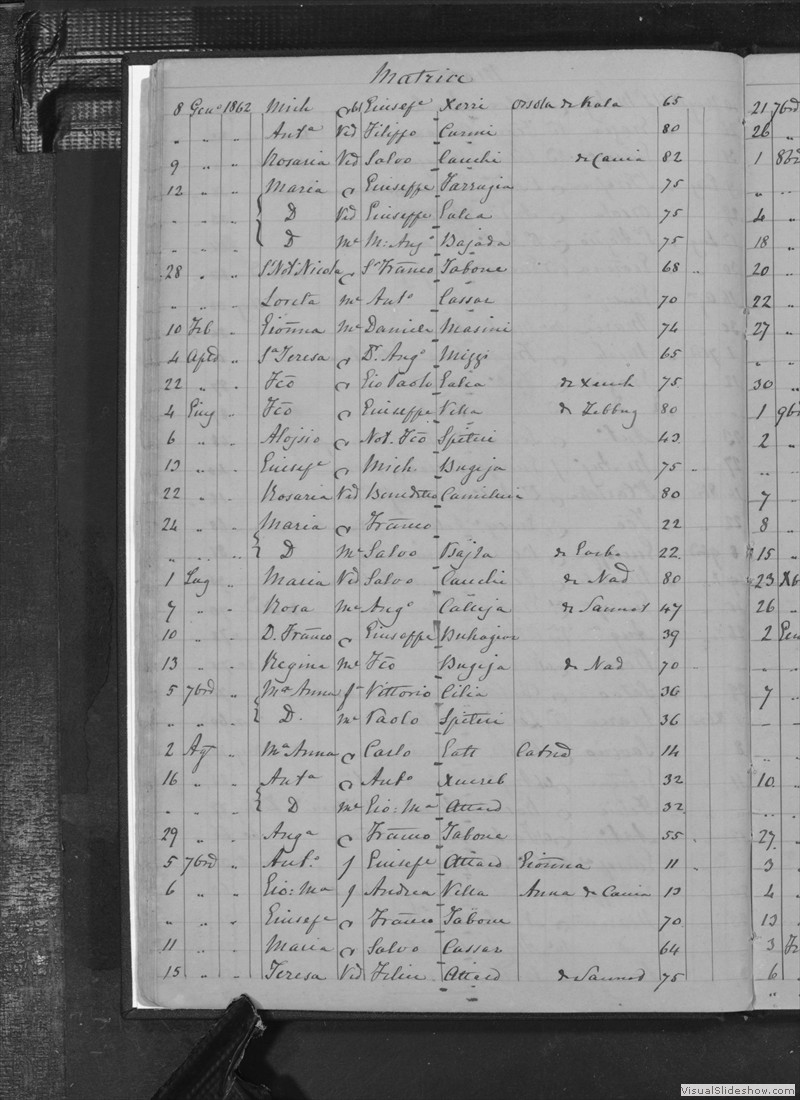 Matrice
8 Gen.o 1862 Mich Giusef.e Xerri Orsola de Kala 65
" " " Ant.a Vid Filippo Curmi 80
9 " " Rosaria Vid Salvo Cauchi de Cauia 82
12 " " Maria Giuseppe Farrugia 75
" " " D Vid Giuseppe Galea 75
" " " D M.e M: Ang.o Bajada 75
28 " " S.r Not. Nicola S.r Franco Tabone 68
" " " Loreta M.e Ant.o Cassar 70
10 Feb " Gioanna M.e Daniele Masini 74
4 " S.a Teresa D.r Ang.o Mizzi 65
22 " " Fco Gio Paolo Galea de Xeuch 75
4 Giug " Fco Giuseppe Vella de Zebbug 80
6 " " Aloisio Not. Fco Spiteri 43
13 " " Giusef.e Mich. Bugeja 75
22 " " Rosaria Vid Benedetto Camilleri 80
24 " " Maria Franco 22
" " " D M.e Salvo Bajja 22
1 Lug " Maria Vid Salvo Cauchi de Nad 80
7 " " Rosa M.e Ang.o Calleja de Sannat 47
10 " " D. Franco Giuseppe Buhagiar 39
13 " " Regina M.e Fco Bugeja de Nad 70
5 7bre " M.a Anna f.a Vittorio Cilia 36
" " " D. M.e Paolo Spiteri 36
2 Ag " M.a Anna Carlo Gatt 14
16 " " Ant.a Ant.o Xuereb 32
" " " D M.e Gio: M.a Attard 32
29 " " Ang.a Franco Tabone 55
5 7bre " Ant.o f Giusef.e Attard Gioanna 11
6 " " Gio: M.a f Andrea Vella Anna de Cauia 13
" " " Giusef.e Franco Tabone 70
11 " " Maria Salvo Cassar 64
15 " " Teresa Vid Attard de Sannad 75
21 7bre
26 "
1 8bre
"
4 "
18 "
20 "
22 "
27 "
"
30 "
1 9bre
2 "
"
7 "
8 "
15 "
23 Xb
26 "
2 Gen
"
7 "
10 "
27 "
3 "
4 "
13 "
3
6 "
"
VisualSlideshow.com